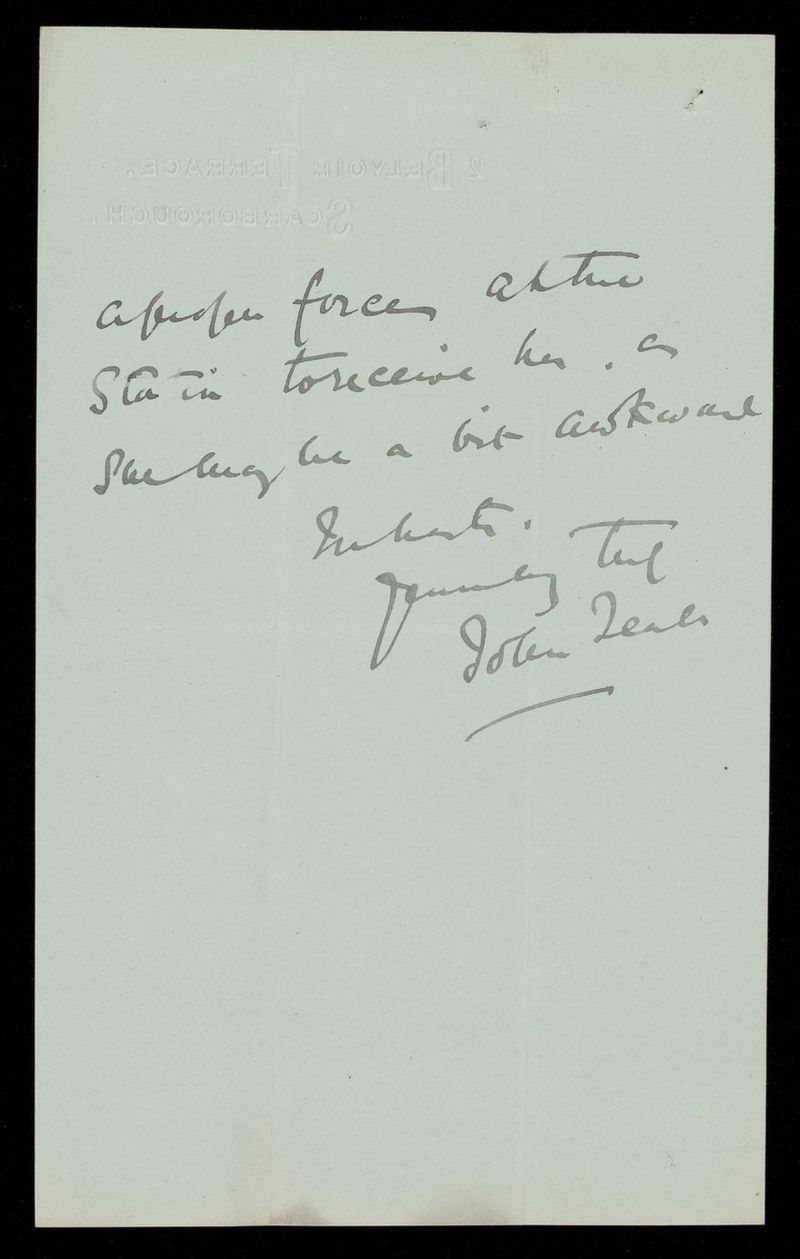 2 BELVOIR TERRACE.
SCARBOROUGH.
a proper force at the
Station to receive her. as
She may be a bit awkward
In haste.
Yours very truly
John